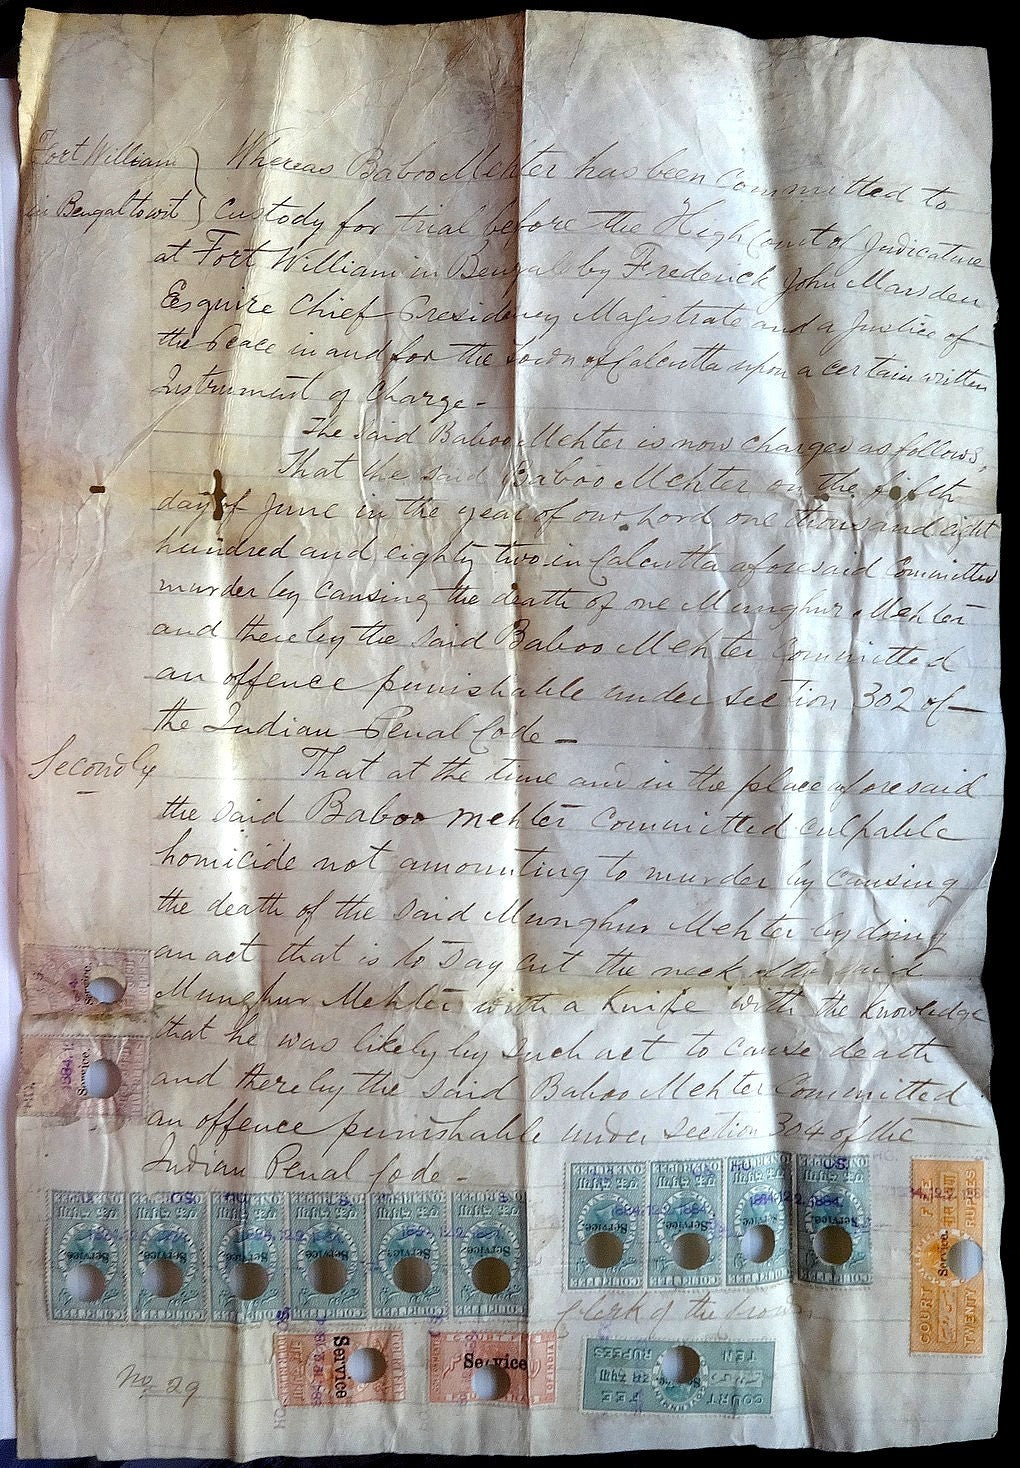 Fort William
in Bengal to wit
Whereas Baboo Mehter has been Committed to
Custody for trial before the High Court of Judicature
at Fort William in Bengal by Frederick John Marsden
Esquire Chief Presidency Magistrate and a Justice of
the Peace in and for the town of Calcutta upon a certain written
Instrument of Charge -
The said Baboo Mehter is now charged as follows,
That the said Baboo Mehter on the fifth
day of June in the year of our Lord one thousand eight
hundred and eighty two in Calcutta aforesaid Committed
murder by causing the death of one Munghur Mehter
and thereby the said Baboo Mehter Committed
an offence punishable under section 302 of
the Indian Penal Code -
Secondly
That at the time and in the place aforesaid
the said Baboo Mehter Committed culpable
homicide not amounting to murder by causing
the death of the said Munghur Mehter by doing
an act that is to say cut the neck of the said
Munghur Mehter with a Knife with the knowledge
that he was likely by such act to cause death
and thereby the said Baboo Mehter Committed
an offence punishable under section 304 of the
Indian Penal Code -
Service
Service
Service Service Service Service Service Service
Service Service Service Service
COURT FEE
TWENTY RUPEES
Service
Clerk of the Crown
Service
Service
COURT FEE
TEN RUPEES
No 29